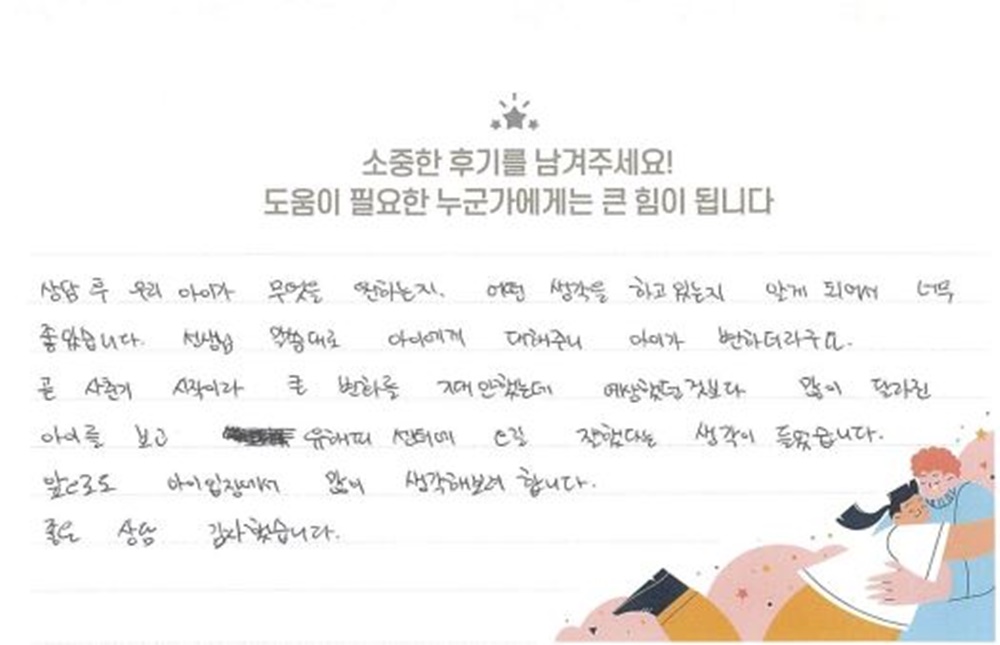 소중한 후기를 남겨주세요!
도움이 필요한 누군가에게는 큰 힘이 됩니다
상담 후 우리 아이가 무엇을 원하는지. 어떤 생각을 하고 있는지 알게 되어서 너무
좋았습니다. 선생님 말씀대로 아이에게 대해주니 아이가 변하더라구요.
곧 사춘기 시작이라 큰 변화를 기대안했는데 예상했던것보다 많이 달라진
아이를 보고 센터에 오길 잘했다는 생각이 들었습니다.
앞으로도 아이입장에서 많이 생각해보려 합니다.
좋은 상담 감사했습니다.